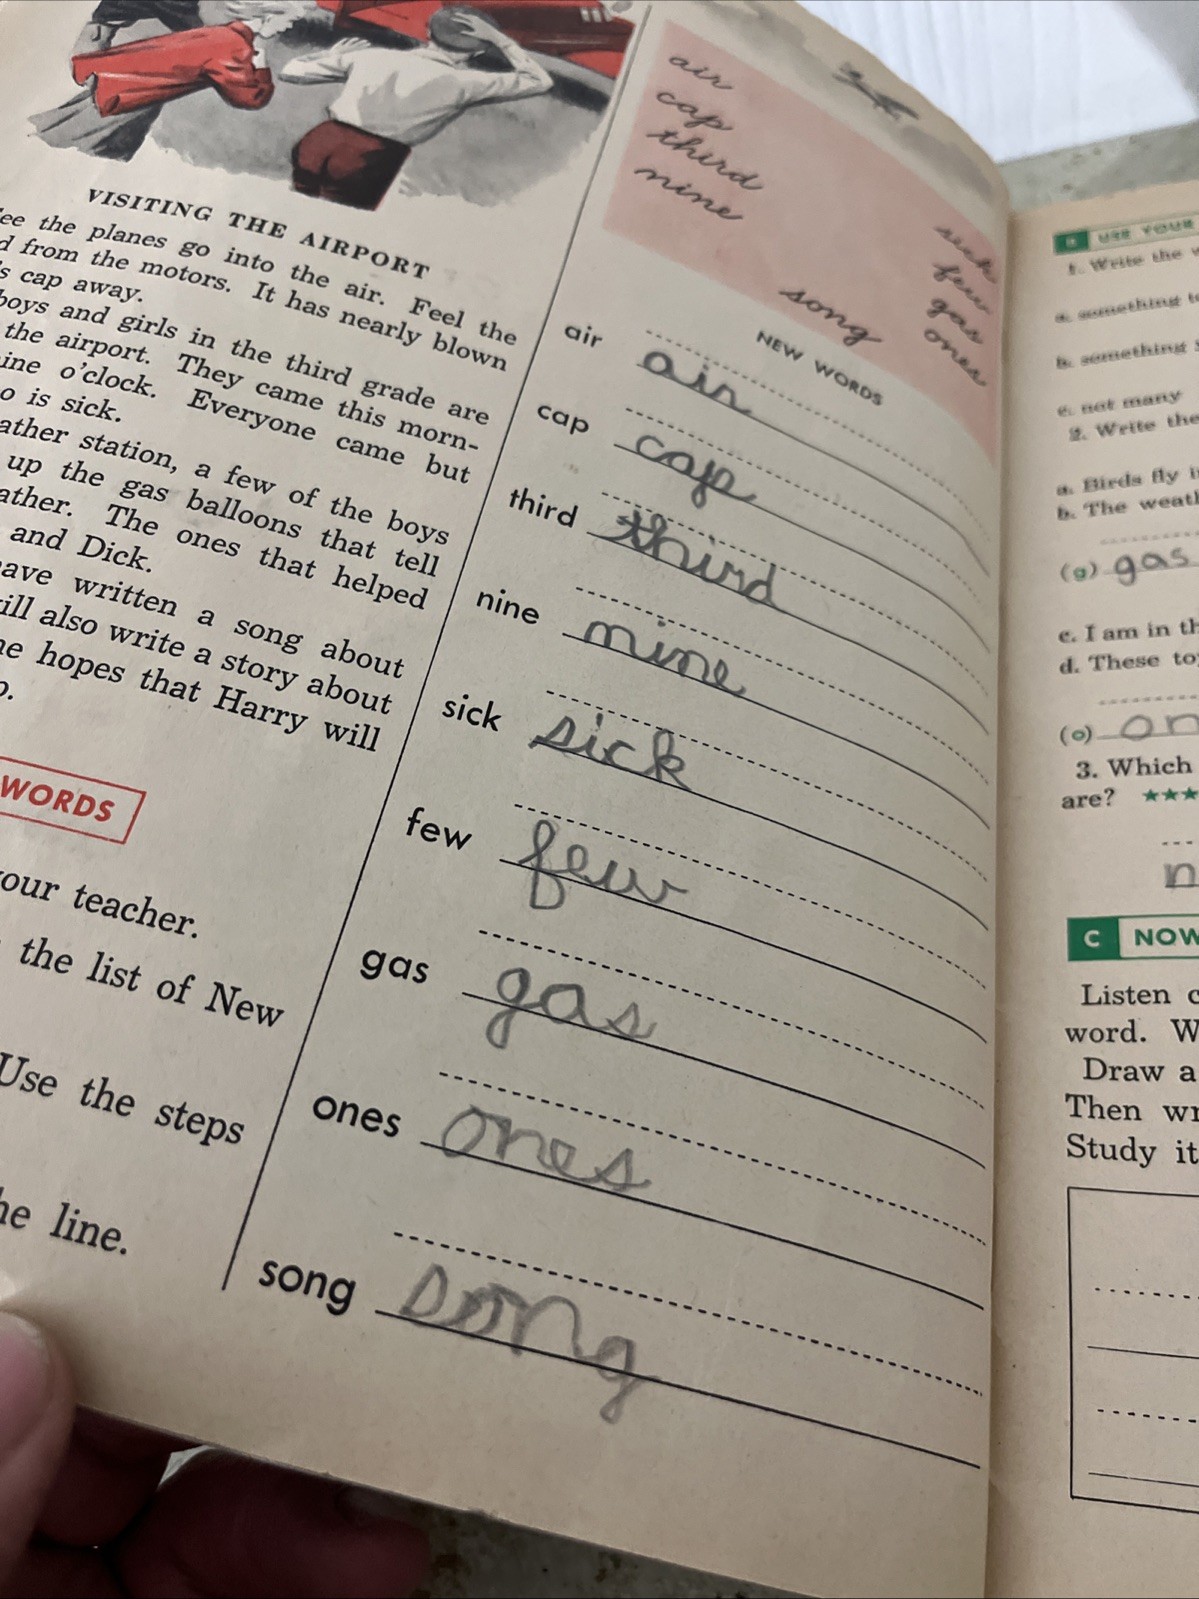 VISITING THE AIRPORT
the planes go into the air. Feel the
from the motors. It has nearly blown
cap away.
boys and girls in the third grade are
the airport. They came this morn-
o'clock. Everyone came but
is sick.
station, a few of the boys
up the gas balloons that tell
The ones that helped
and Dick.
written a song about
also write a story about
hopes that Harry will
WORDS
your teacher.
the list of New
Use the steps
line.
air
cap
third
nine
sick
few
gas
ones
song
NEW WORDS
air air
cap cap
third third
nine nine
sick sick
few few
gas gas
ones ones
song song
B USE YOUR
1. Write the
a. something
b. something
c. not many
2. Write the
a. Birds fly
b. The
(g) gas
c. I am in
d. These
(o) on
3. Which
are? ★★★
n
C NOW
Listen
word.
Draw a
Then
Study it